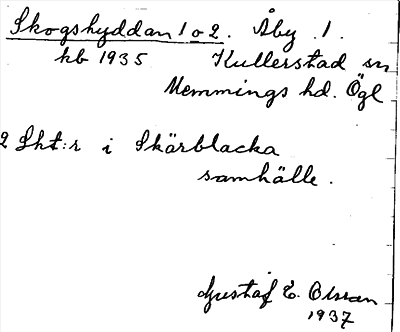 Skogshyddan 1 o 2. Åby 1.
kb 1935 Kullerstad sn
Memmings hd. Ögl
2 Lht:r i Skärblacka
samhälle.
Gustaf E. Olsson
1937